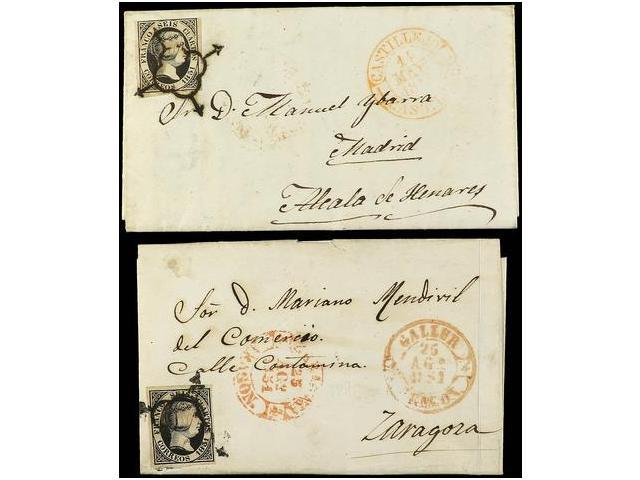 FRANCO SEIS CUARTOS
CORREOS 1851
CASTILLEJO
Sr. D. Manuel Ybarra
Madrid
Alcala de Henares
Sor. D. Mariano Mendivil
del Comercio.
Calle Contamina.
GALLUR
25
AGO
1851
Zaragoza
FRANCO SEIS CUARTOS
CORREOS 1851